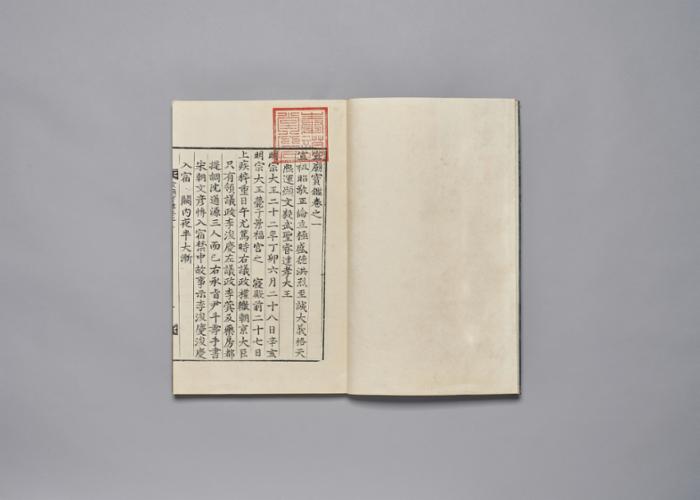 宣廟寶鑑卷之一
宣祖昭敬正倫立極盛德洪烈至誠大義格天
熙運顯文毅武聖睿達孝大王
明宗大王二十二年丁卯六月二十八日辛亥
明宗大王薨于景福宮之 寢殿前二十七日
上疾猝重日午尤篤時右議政權轍朝京大臣
只有領議政李浚慶左議政李蓂及藥房都
提調沈通源三人而已右承旨尹斗壽手書
宋朝文彥博入宿禁中故事示李浚慶浚慶
入宿 闕內夜半大漸